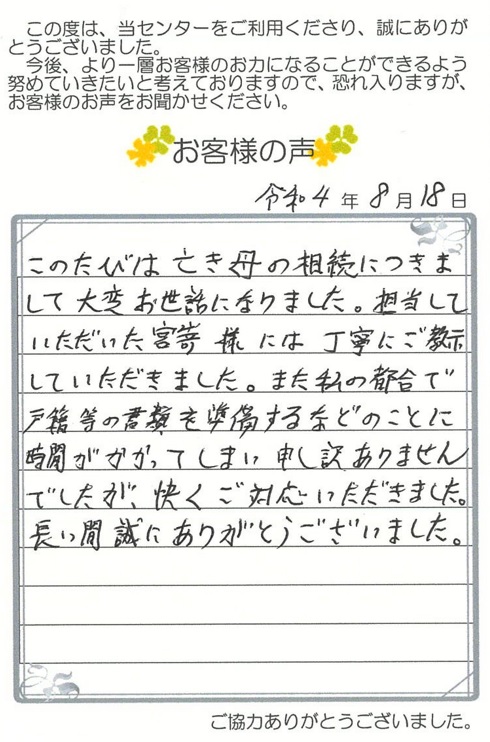 この度は、当センターをご利用くださり、誠にありが
とうございました。
今後、より一層お客様のお力になることができるよう
努めていきたいと考えておりますので、恐れ入りますが、
お客様のお声をお聞かせください。
お客様の声
令和4年8月18日
このたびは亡き母の相続につきま
して大変お世話になりました。担当して
いただいた宮嵜様には丁寧にご教示
していただきました。また私の都合で
戸籍等の書類を準備するなどのことに
時間がかかってしまい申し訳ありません
でしたが、快くご対応いただきました。
長い間誠にありがとうございました。
ご協力ありがとうございました。